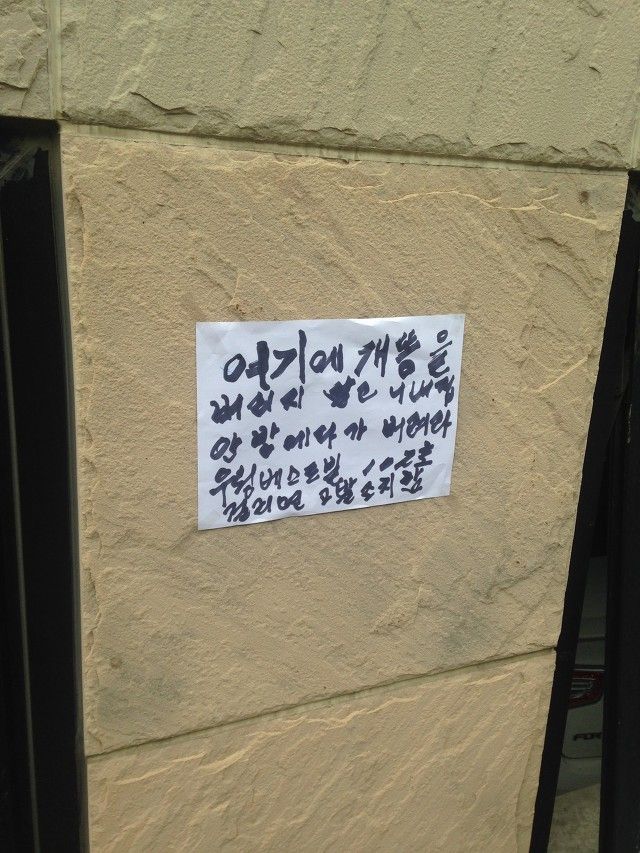 여기에 개똥을
버리지 말고 니내집
안방에다가 버려라
우림베스트빌 102호
걸리면 고발소치함
FOR